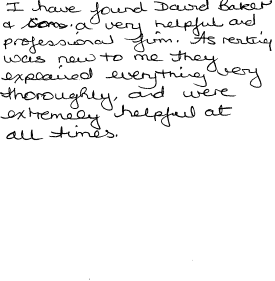 I have found David Baker
& Co. a very helpful and
professional firm. As renting
was new to me they
explained everything very
thoroughly, and were
extremely helpful at
all times.